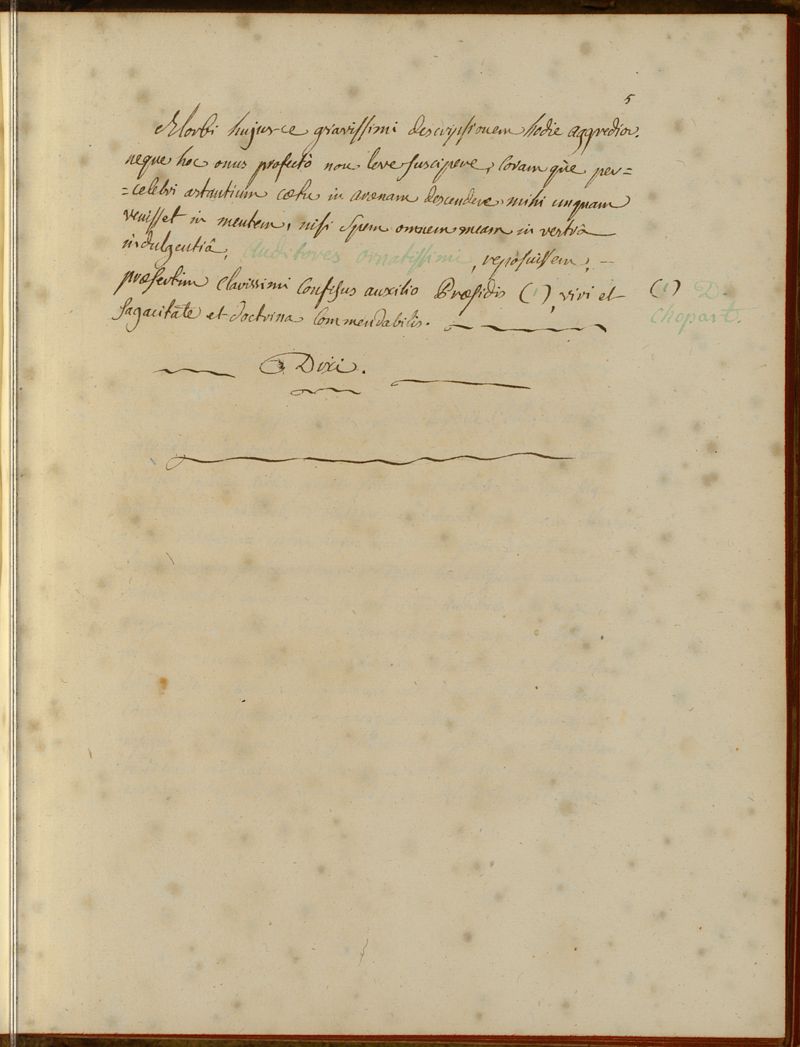 5
Morbi hujus-ce gravissimi descriptionem hodie aggredior.
neque hoc onus profectò non leve suscipere, Coram què per=
=celebri astantium cœtu in arenam descendere mihi unquam
venisset in mentem, nisi Spem omnem meam in vestrâ
indulgentiâ, Auditores ornatissimi, reposuissem; –
præsertim Clarissimi Confisus auxilio Præsidis (1), viri et
Sagacitate et doctrina Commendabilis.
(1) D.
Chopart.
Dixi.